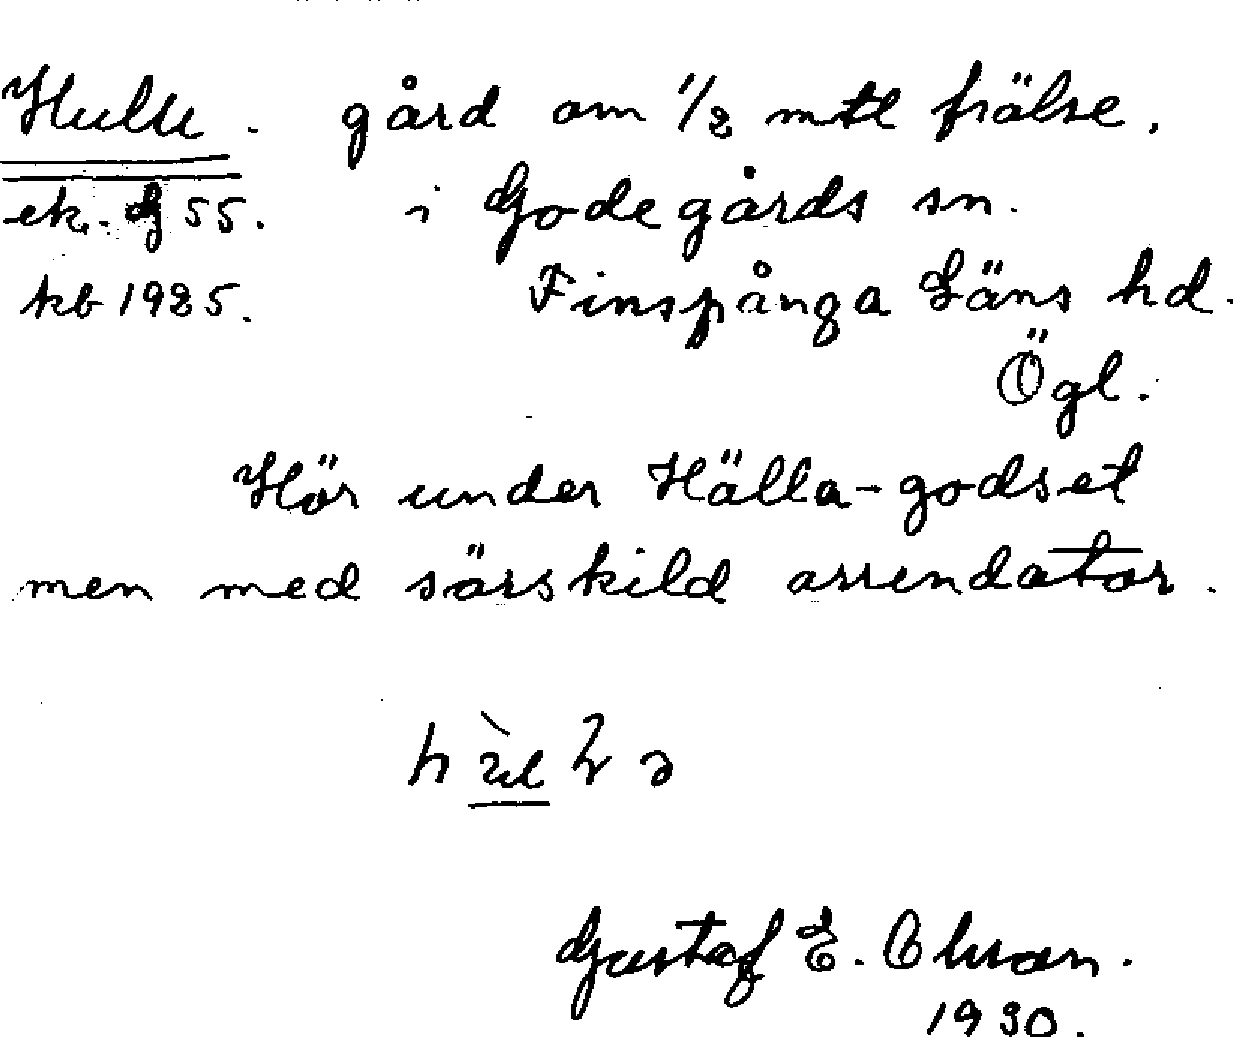 Hulta. gård om 1/2 mtl frälse.
ek. G 55. i Godegårds sn.
kb 1925. Finspånga Läns hd.
Ögl.
Hör under Hälla-godset
men med särskild arrendator.
Gustaf E. Olsson.
1930.